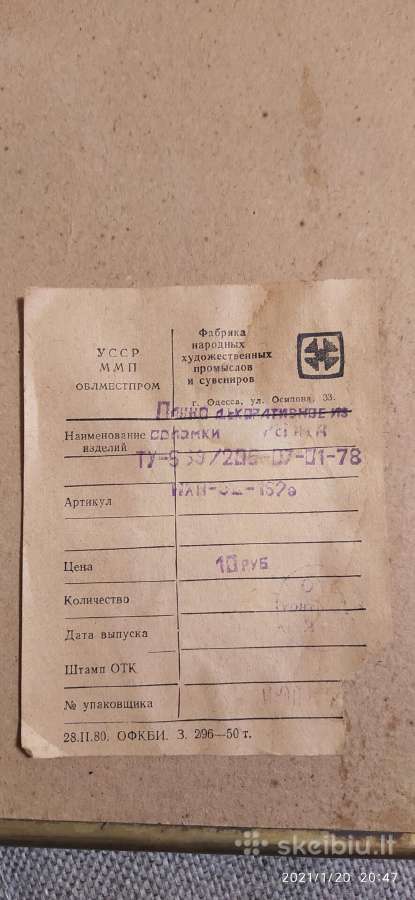 УССР
ММП
ОБЛМЕСТПРОМ
Фабрика
народных
художественных
промыслов
и сувениров
г. Одесса, ул. Осипова, 33.
Панно декоративное из
Наименование соломки
изделий ТУ-5 /205-07-01-78
Артикул
Цена 10 РУБ
Количество
Дата выпуска
Штамп ОТК
№ упаковщика
28.II.80. ОФКБИ. З. 296—50 т.
skelbiu.lt
2021/1/20 20:47